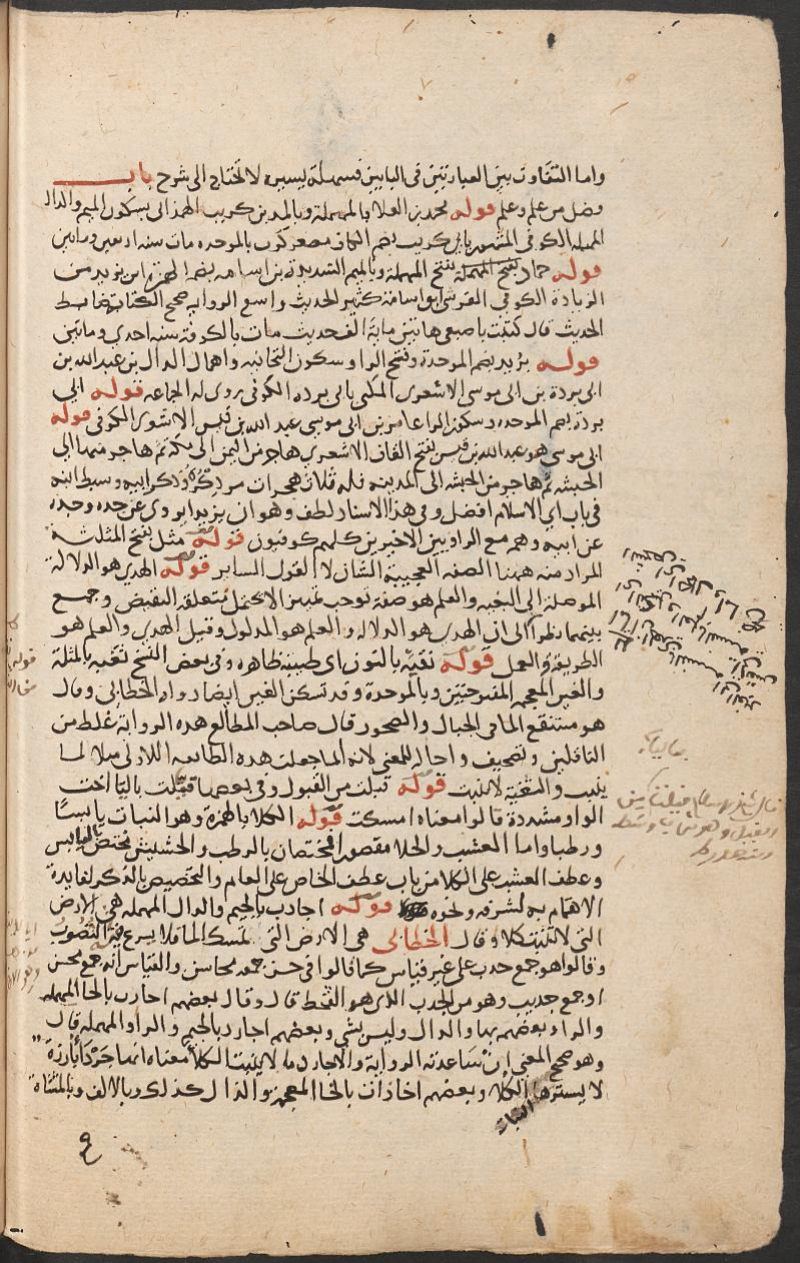 واما التفاوت بين العبارتين في البابين فسهلة يسيرة لا تحتاج الى شرح باب
فضل من علم وعلم قوله محمد بن العلا بالمهملة وبالمد بن كريب الهمداني بسكون الميم والدال
المهملة الكوفي المشهور بابي كريب بضم الكاف مصغر كرب بالموحده مات سنه اربعين وماتين
قوله حماد بفتح المهملة بفتح المهملة وبالميم الشديدة بن اسامه بضم الهمزة ابن يزيد من
الزيادة الكوفي القرشي ابو اسامة كثير الحديث واسع الروايه صحيح الكتاب ضابط
الحديث قال كتبت باصبعي هاتين ماية الف حديث مات بالكوفة سنه احدي وماتين
قوله بريد بضم الموحدة وفتح الرا وسكون التحانيه واهمال الدال بن عبد الله بن
ابي بردة بن ابي موسى الاشعري المكنى بابي برده الكوفي روى له الجماعه قوله ابي
بردة بضم الموحده وسكون الرا عامر بن ابي موسى عبد الله بن قيس الاشعري الكوفي قوله
ابي موسى هو عبد الله بن قيس بفتح القاف الاشعري هاجر من اليمن الى مكة ثم هاجر منها الى
الحبشه ثم هاجر من الحبشه الى المدينه فله ثلاث هجرات مر ذكره وذكر ابيه وسبط ابنه
في باب اي الاسلام افضل وفي هذا الاسناد لطف وهو ان بريدا يروي عن جده وجده
عن ابيه وهم مع الراويين الاخيرين كلهم كوفيون قوله مثل بفتح المثلثة
المراد منه ههنا الصفه العجيبة الشان لا القول الساير قوله الهدي هو الدلالة
الموصلة الى البغيه والعلم هو صفه توجب تمييز الا يحتمل متعلقه النقيض وجمع
بينهما نظرا الى ان الهدي هو الدلاله والعلم هو المدلول وقيل الهدي والعلم هو
الطريقة والعمل قوله نقية بالنون اي طيبة طاهره وفي بعض النسخ ثغبه بالمثلثة
والغين المعجمه المفتوحتين وبالموحدة وقد تسكن الغين ايضا رواه الخطابي وقال
هو مستنقع الما في الجبال والصخور قال صاحب المطالع هذه الرواية غلط من
الناقلين وتصحيف واحاله للمعنى لانه انما جعلت هذه الطايفه الاولى مثلا لما
ينبت والثغبة لا تنبت قوله قبلت من القبول وفي بعضها قيلت باليا اخت
الواو مشددة قالوا معناه امسكت قوله الكلا بالهمزة وهو النبات يابسًا
ورطبا واما العشب والخلا مقصورا فمختصان بالرطب والحشيش مختص باليابس
وعطف العشب على الكلا من باب عطف الخاص على العام والتخصيص بالذكر لفايدة
الاهتمام به لشرفه ونحوه قوله اجادب بالجيم والدال المهمله هي الارض
التي لا تنبت كلا وقال الخطابي هي الارض التي تمسك الما فلا يسرع فيه النضوب
وقالوا هو جمع جدب على غير قياس كما قالوا في حسن جمعه محاسن والقياس انه جمع محسن
او جمع جديب وهو من الجدب الذي هو القحط قال وقال بعضهم احارب بالحا المهملة
والراء وبعضهم بها والدال وليس بشي وبعضهم اجارد بالجيم والرا والمهمله قال
وهو صحيح المعنى إن ساعدته الرواية والاجارد ما لا ينبت الكلأ معناه انها جَرْدَأ بارزة
لا يسترها الكلا وبعضهم اخاذات بالخا المعجمة والذال كذلك وبالالف وبالمثناة
النبات